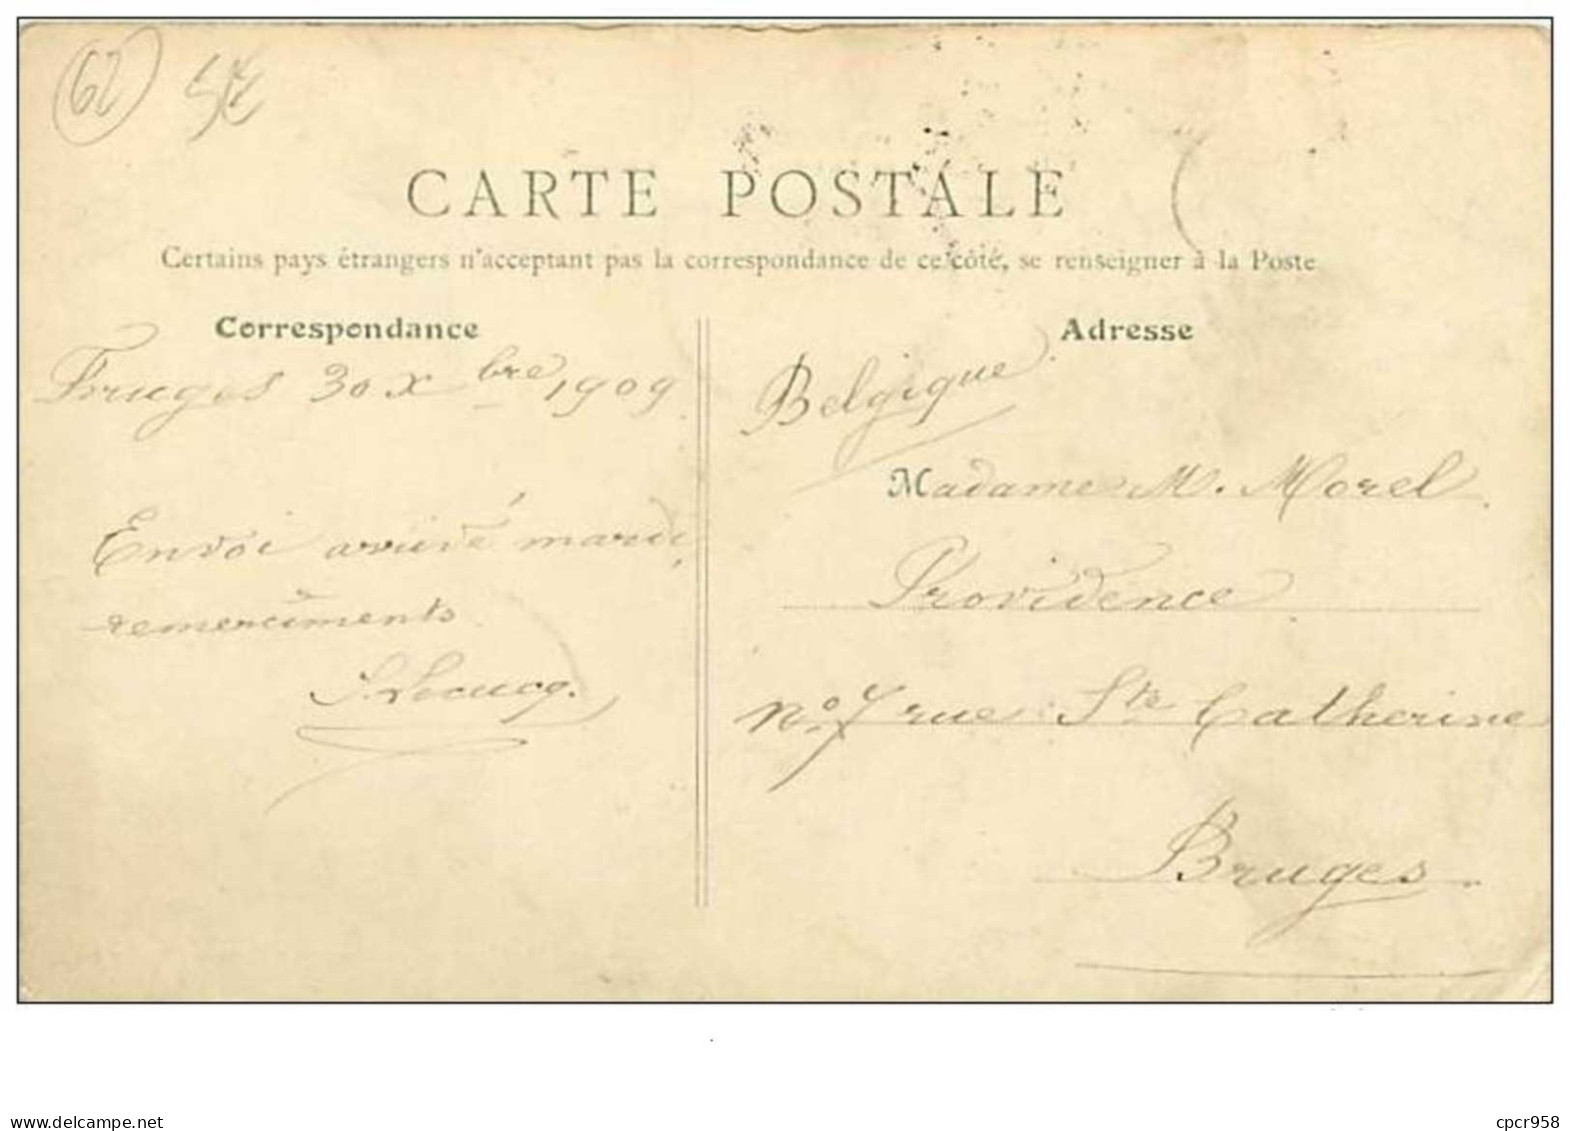 62
CARTE POSTALE
Certains pays étrangers n'acceptant pas la correspondance de ce côté, se renseigner à la Poste
Correspondance
Fruges 30 Xbre 1909
Envoi arrivé mardi,
remerciments
Adresse
Belgique
Madame M. Morel
Providence
No. 7 rue Ste Catherine
Bruges
www.delcampe.net
cpcr958